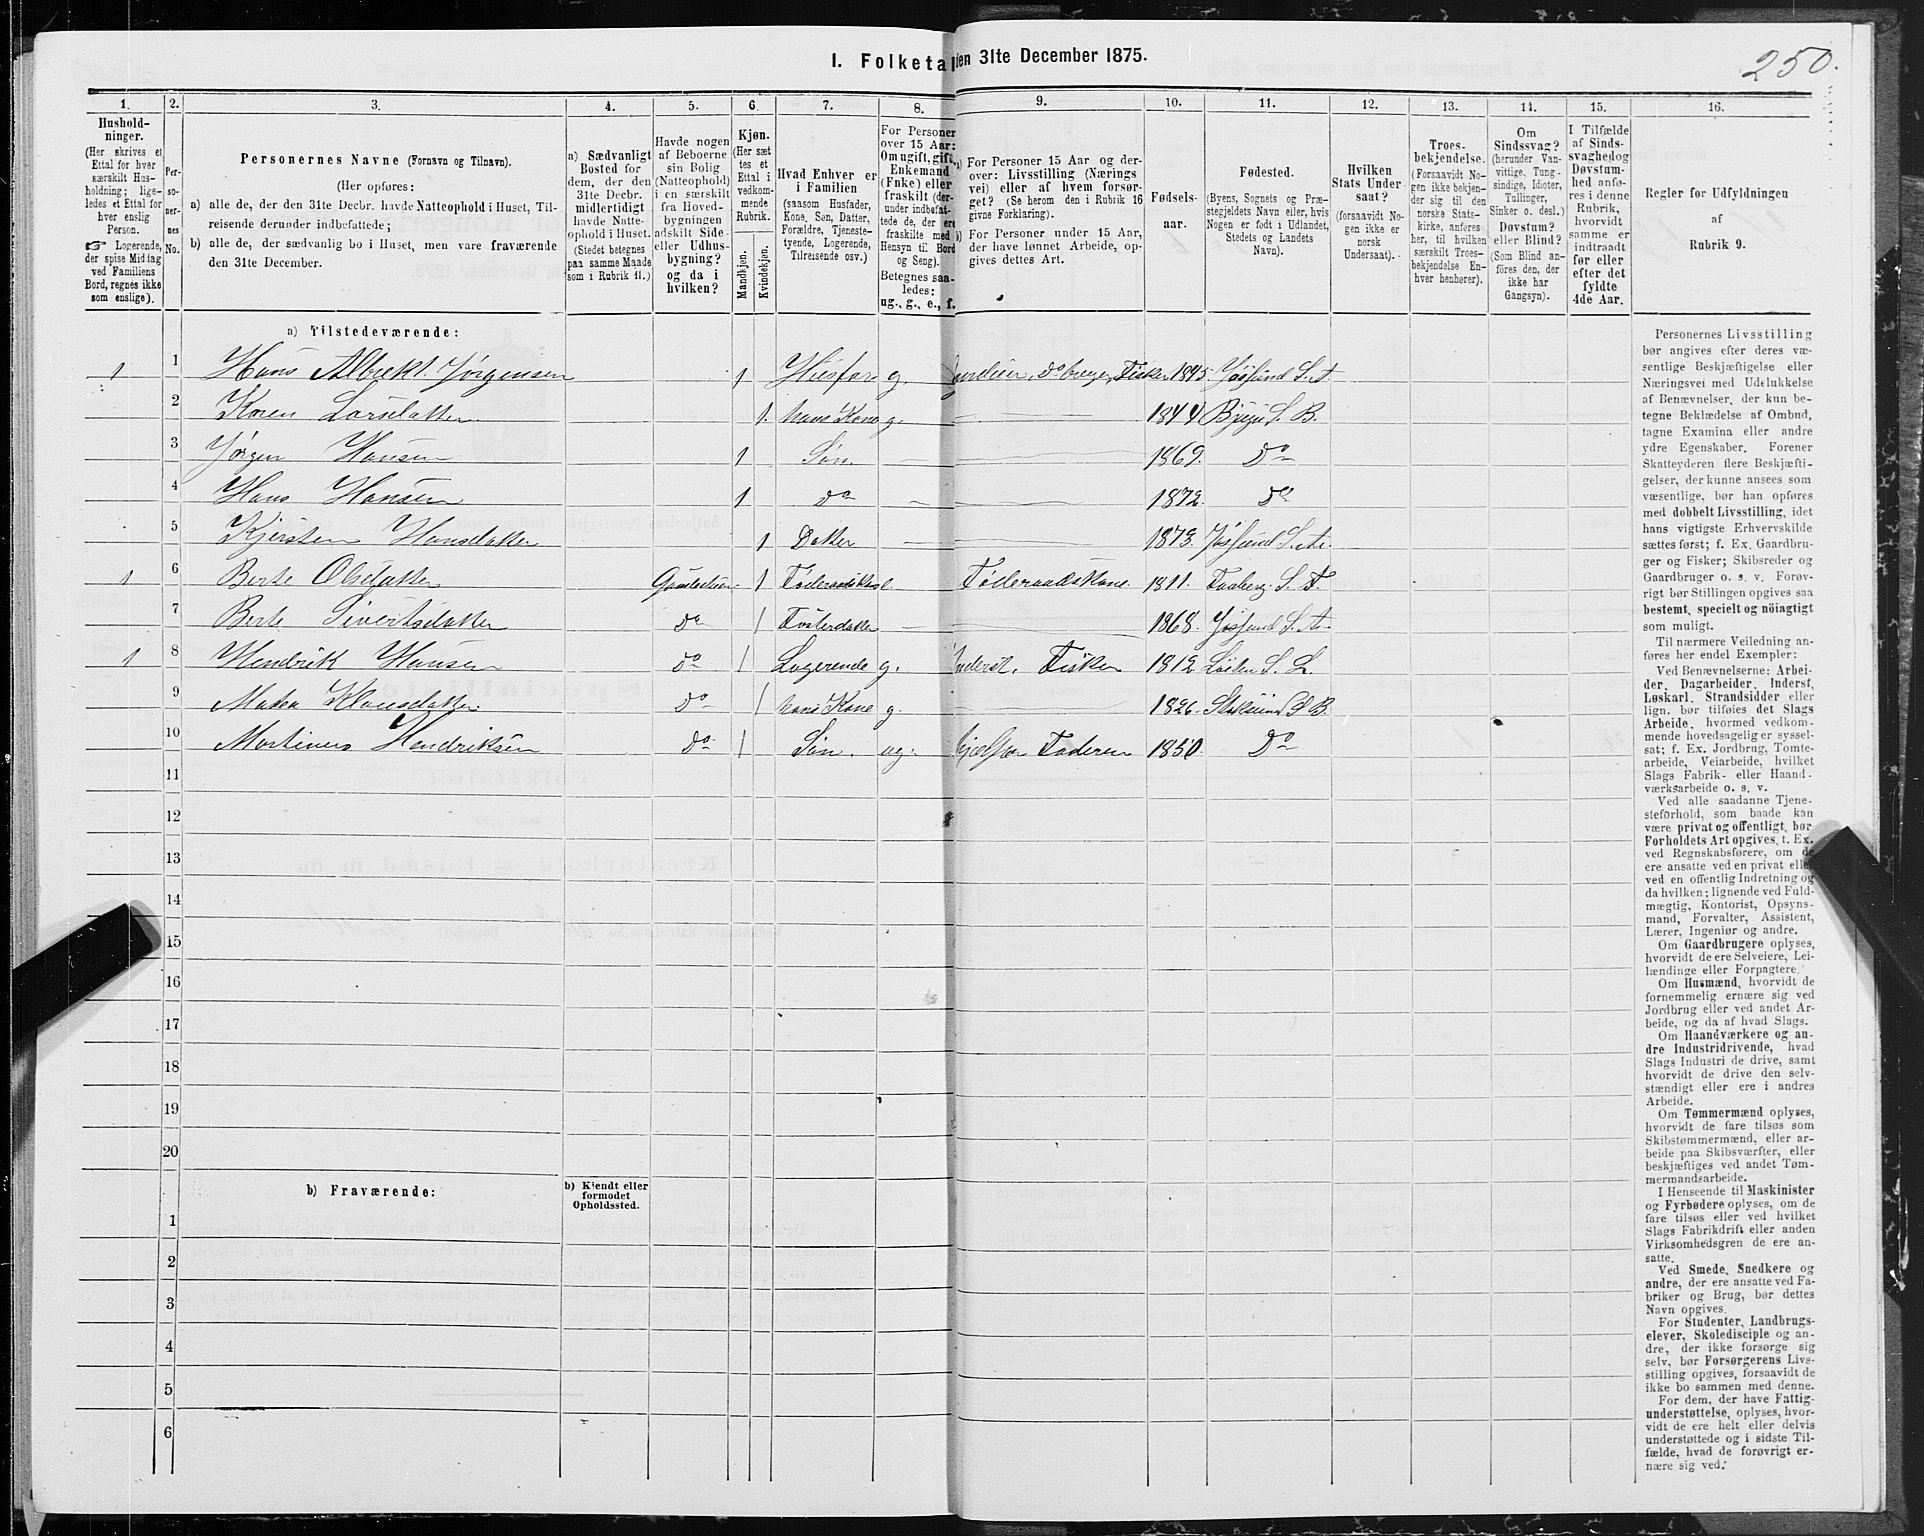 I. Folketal den 31te December 1875.
250.
1. 2. 3. 4. 5. 6. 7. 8. 9. 10. 11. 12. 13. 14. 15. 16.
Hushold-
ninger.
(Her skrives et
Ettal for hver
særskilt Hus-
holdning; lige-
ledes et Ettal for
hver enslig
Person.
☞ Logerende,
der spise Middag
ved Familiens
Bord, regnes ikke
som enslige).
Per-
so-
ner-
nes
No.
Personernes Navne (Fornavn og Tilnavn).
(Her opføres:
a) alle de, der den 31te Decbr. havde Natteophold i Huset, Til-
reisende derunder indbefattede;
b) alle de, der sædvanlig bo i Huset, men vare fraværende
den 31te December.
a) Sædvanligt
Bosted for
dem, der den
31te Decbr.
midlertidigt
havde Natte-
ophold i Huset.
(Stedet betegnes
paa samme Maade
som i Rubrik 11.)
Havde nogen
af Beboerne
sin Bolig
(Natteophold)
i en særskilt
fra Hoved-
bygningen
adskilt Side-
eller Udhus-
bygning?
og da i
hvilken?
Kjøn.
(Her sæt-
tes et
Ettal i
vedkom-
mende
Rubrik.
Mandkjøn.
Kvindekjøn.
Hvad Enhver er
i Familien
(saasom Husfader,
Kone, Søn, Datter,
Forældre, Tjeneste-
tyende, Logerende,
Tilreisende osv.)
For Personer
over 15 Aar:
Om ugift, gift,
Enkemand
(Enke) eller
fraskilt (der-
under indbefat-
tede de, der ere
fraskilte med
Hensyn til Bord
og Seng).
Betegnes saa-
ledes:
ug., g., e., f.
a) For Personer 15 Aar og der-
over: Livsstilling (Nærings
vei) eller af hvem forsør-
get? (Se herom den i Rubrik 16
givne Forklaring).
b) For Personer under 15 Aar,
der have lønnet Arbeide, op-
gives dettes Art.
Fødsels-
aar.
Fødested.
(Byens, Sognets og Præ-
stegjeldets Navn eller, hvis
Nogen er født i Udlandet,
Stedets og Landets
Navn).
Hvilken
Stats Under-
saat?
(forsaavidt No-
gen ikke er
norsk
Undersaat).
Troes-
bekjendelse.
(Forsaavidt No-
gen ikke bekjen-
der sig til den
norske Stats-
kirke, anføres
her, til hvilken
særskilt Troes-
bekjendelse En-
hver henhører).
Om
Sindssvag?
(herunder Van-
vittige, Tung-
sindige, Idioter,
Tullinger,
Sinker o. desl.)
Døvstum?
eller Blind?
(Som Blind an-
føres den, der
ikke har
Gangsyn).
I Tilfælde
af Sinds-
svaghed og
Døvstum-
hed anfø-
res i denne
Rubrik,
hvorvidt
samme er
indtraadt
før eller
efter det
fyldte
4de Aar.
Regler for Udfyldningen
af
Rubrik 9.
a) Tilstedeværende:
1 1 Hans Albrekt. Jørgensen 1 Husfar g. Fisker 1845 Jøssund S. A.
2 Karen Larsdatter 1. hans Kone g. 1844 S. B.
3 Jørgen Hansen 1 Søn. 1869. Do
4 Hans Hansen 1 do 1872. Do
5 Kjersten Hansdatter 1 Datter 1873. Jøssund S. A.
1 6 Berte Olsdatter 1 Føderaadskone Føderaadskone 1811. S. F.
7 Berte Sivertsdatter do 1 Fosterdatter 1868. Jøssund S. A.
1 8 Hendrik Hansen do 1 Logerende g. Inderst. Fisker 1812 S. L.
9 Klausdatter do 1 hans Kone g. 1826. Stoksund S B.
10 Martinus Hendriksen do 1 Søn. ug. Hjælper Faderen 1850. Do
11
12
13
14
15
16
17
18
19
20
b) Fraværende:
b) Kjendt eller
formodet
Opholdssted.
1
2
3
4
5
6
Personernes Livsstilling
bør angives efter deres væ-
sentlige Beskjæftigelse eller
Næringsvei med Udelukkelse
af Benævnelser, der kun be-
tegne Beklædelse af Ombud,
tagne Examina eller andre
ydre Egenskaber. Forener
Skatteyderen flere Beskjæfti-
gelser, der kunne ansees som
væsentlige, bør han opføres
med dobbelt Livsstilling, idet
hans vigtigste Erhvervskilde
sættes først; f. Ex. Gaardbru-
ger og Fisker; Skibsreder og
Gaardbruger o. s. v. Forøv-
rigt bør Stillingen opgives saa
bestemt, specielt og nöiagtigt
som muligt.
Til nærmere Veiledning an-
føres her endel Exempler:
Ved Benævnelserne: Arbei-
der, Dagarbeider, Inderst,
Løskarl, Strandsidder eller
lign. bør tilføies det Slags
Arbeide, hvormed vedkom-
mende hovedsagelig er syssel-
sat; f. Ex. Jordbrug, Tomte-
arbeide, Veiarbeide, hvilket
Slags Fabrik- eller Haand-
værksarbeide o. s. v.
Ved alle saadanne Tjene-
steforhold, som baade kan
være privat og offentligt, bør
Forholdets Art opgives, t. Ex.
ved Regnskabsførere, om de
ere ansatte ved en privat eller
ved en offentlig Indretning og
da hvilken; lignende ved Fuld-
mægtig, Kontorist, Opsyns-
mand, Forvalter, Assistent,
Lærer, Ingeniør og andre.
Om Gaardbrugere oplyses,
hvorvidt de ere Selveiere, Lei-
lændinge eller Forpagtere.
Om Husmænd, hvorvidt de
fornemmelig ernære sig ved
Jordbrug eller ved andet Ar-
beide, og da af hvad Slags.
Om Haandværkere og an-
dre Industridrivende, hvad
Slags Industri de drive, samt
hvorvidt de drive den selv-
stændigt eller ere i andres
Arbeide.
Om Tømmermænd oplyses,
hvorvidt de fare tilsøs som
Skibstømmermænd, eller ar-
beide paa Skibsværfter, eller
beskjæftiges ved andet Tøm-
mermandsarbeide.
I Henseende til Maskinister
og Fyrbødere oplyses, om de
fare tilsøs eller ved hvilket
Slags Fabrikdrift eller anden
Virksomhedsgren de ere an-
satte.
Ved Smede, Snedkere og
andre, der ere ansatte ved Fa-
briker og Brug, bør dettes
Navn opgives.
For Studenter, Landbrugs-
elever, Skoledisciple og an-
dre, der ikke forsørge sig
selv, bør Forsørgerens Livs-
stilling opgives, forsaavidt de
ikke bo sammen med denne.
For dem, der have Fattig-
understøttelse, oplyses, hvor-
vidt de ere helt eller delvis
understøttede og i sidste Til-
fælde, hvad de forøvrigt er-
nære sig ved.